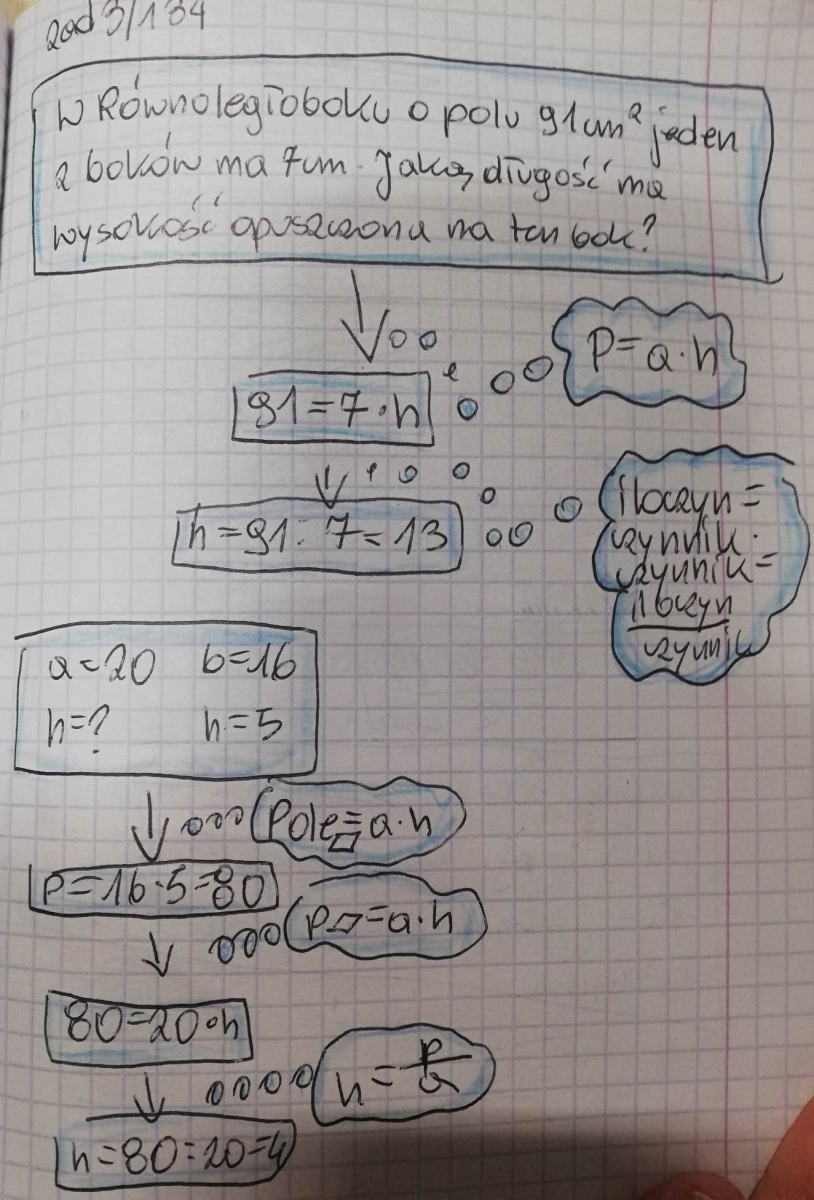 zad 3/134
W Równoległoboku o polu 91cm² jeden
z boków ma 7cm. Jaką długość ma
wysokość opuszczona na ten bok?
P=a·h
91=7·h
h=91:7=13
iloczyn=
czynnik·
czynnik=
iloczyn
czynnik
a=20 b=16
h=? h=5
Pole▱=a·h
P=16·5=80
P▱=a·h
80=20·h
h=P/a
h=80:20=4